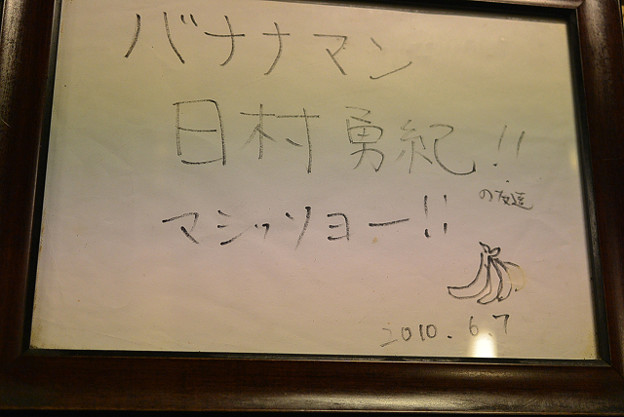 バナナマン
日村勇紀!!
の友達
マジッソョー!!
2010.6.7